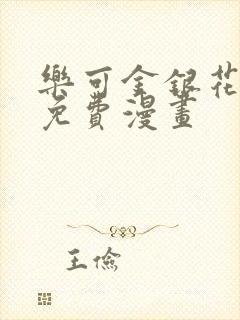 樂可金銀花
免費漫畫
王儉